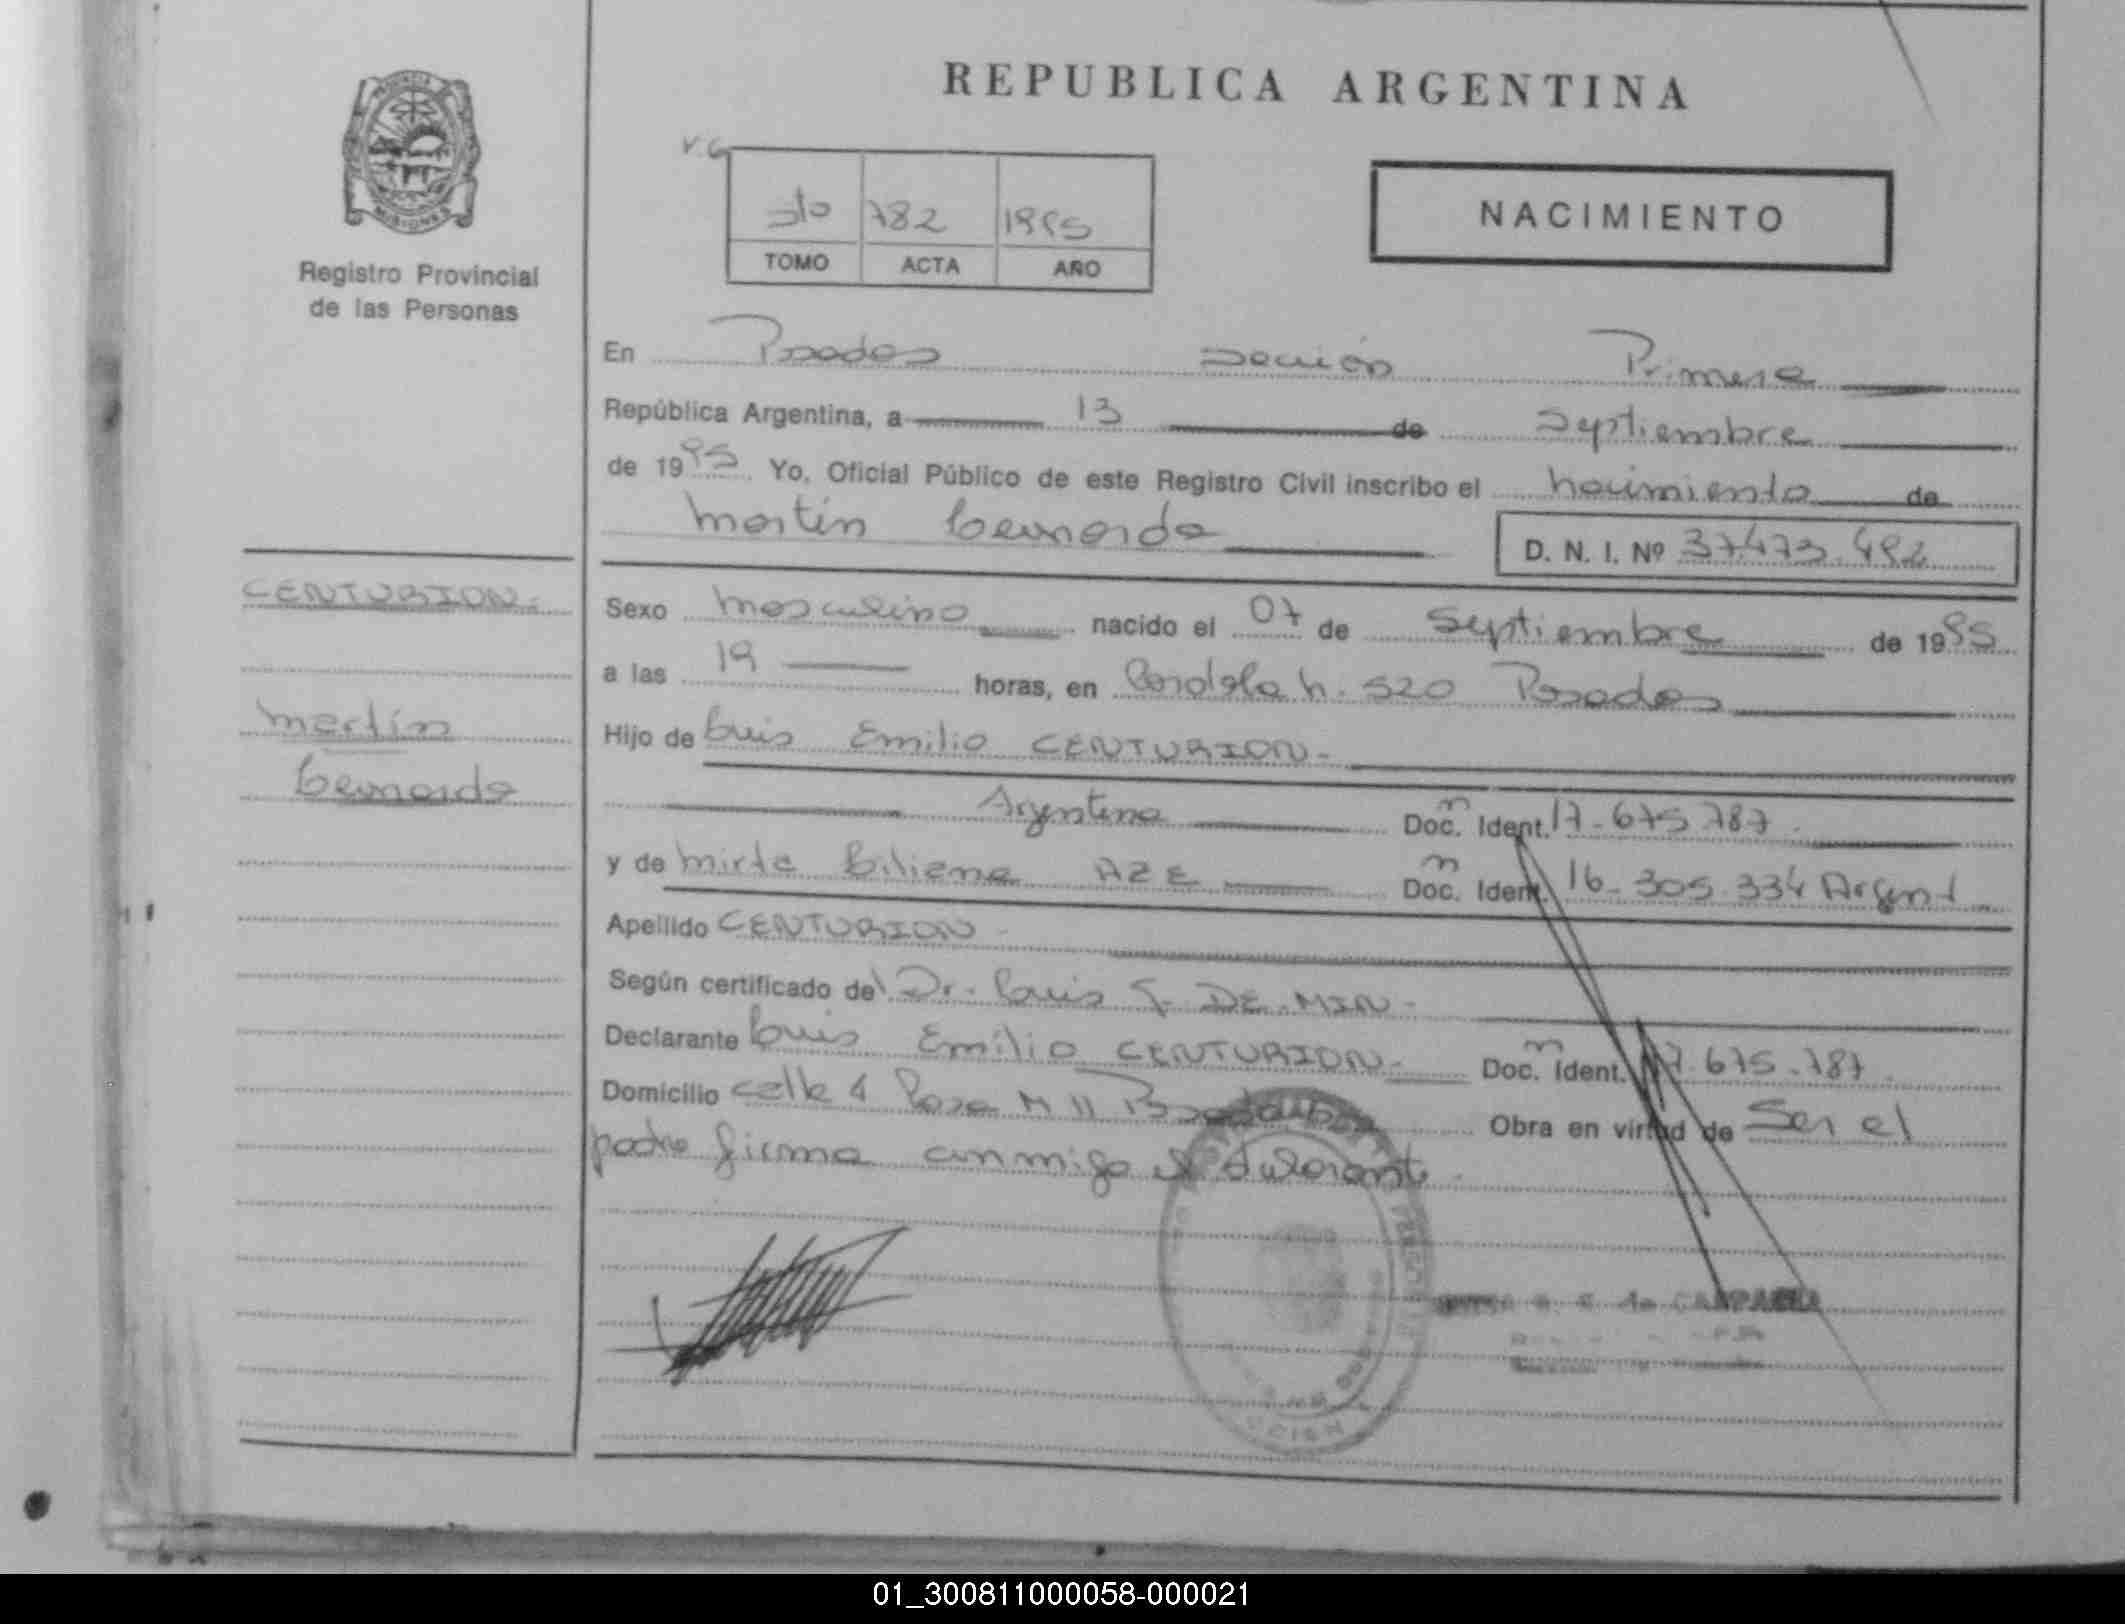 REPUBLICA ARGENTINA
PROVINCIA
MISIONES
Registro Provincial
de las Personas
V.G
5to 782 1995
TOMO ACTA AÑO
NACIMIENTO
En Posadas sección Primera
República Argentina, a 13 de Septiembre
de 1995 Yo, Oficial Público de este Registro Civil inscribo el nacimiento de
Martín Leonardo
D. N. I. Nº 37.473.492
CENTURION.-
Martín
Leonardo
Sexo Masculino nacido el 07 de Septiembre de 1995
a las 19 horas, en Córdoba n. 520 Posadas
Hijo de Luis Emilio CENTURION-
Argentina Doc. Ident. 17-675.787
y de Mirta Liliana AZE Doc. Ident. 16-305.334 Argent
Apellido CENTURION-
Según certificado del Dr. Luis J. DE MIN-
Declarante Luis Emilio CENTURION- Doc. Ident. 17.675.787.
Domicilio calle 4 Posadas Obra en virtud de Ser el
padre firma conmigo el declarante.
01_300811000058-000021